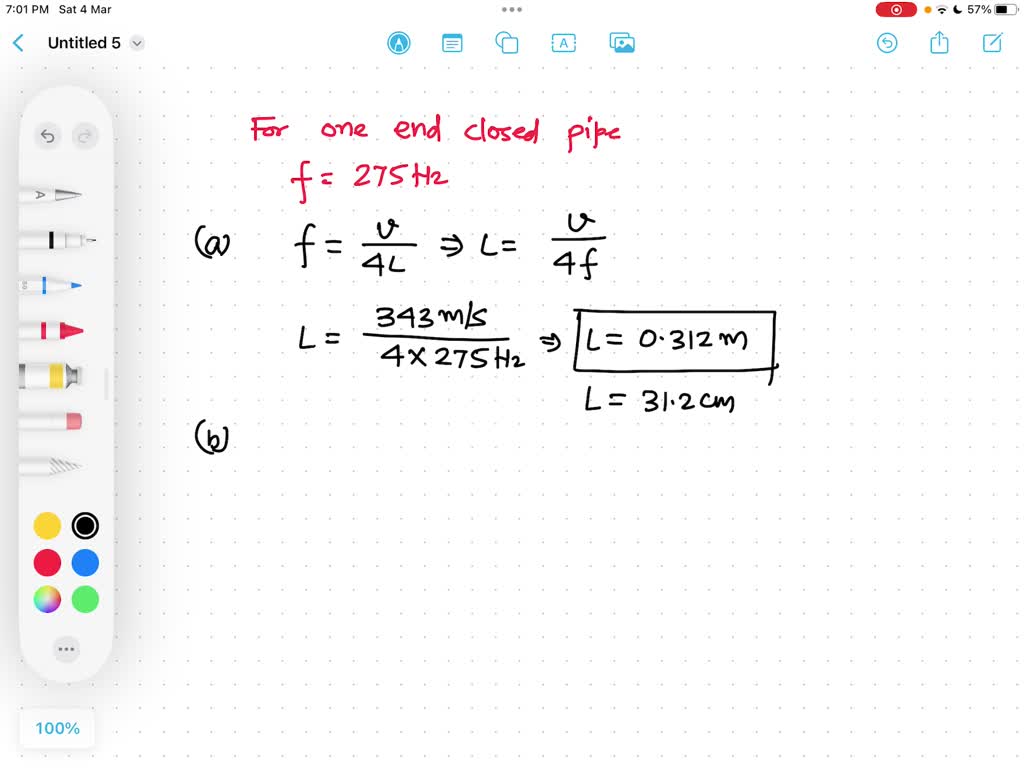 7:01 PM Sat 4 Mar 57%
Untitled 5
A
A
For one end closed pipe
f = 275 Hz
(a) f = v/4L ⇒ L = v/4f
L = 343 m/s / 4 × 275 Hz ⇒ L = 0.312 m
L = 31.2 cm
(b)
100%